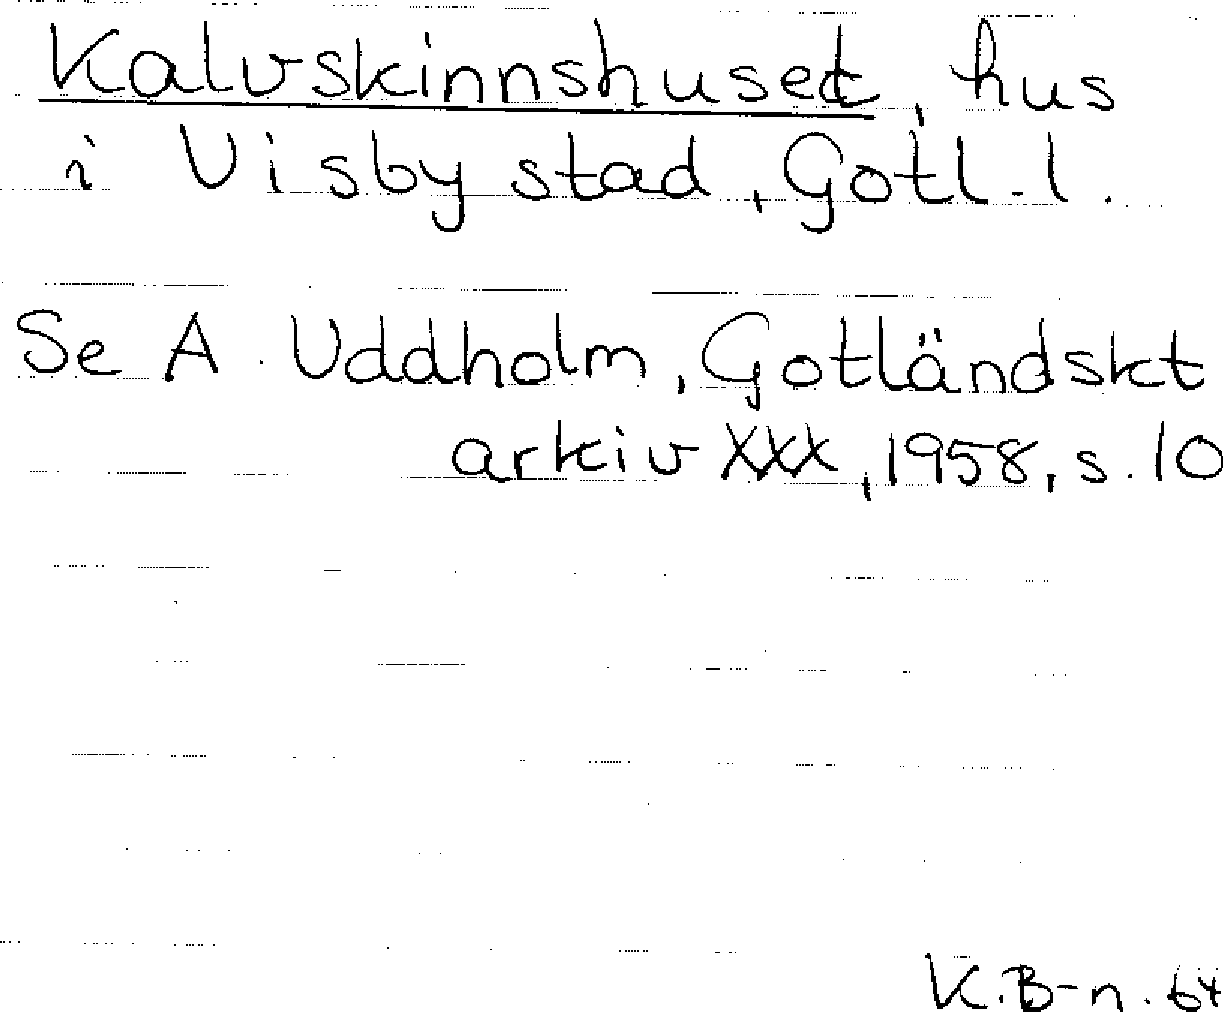 Kalvskinnshuset, hus
i Visby stad, Gotl. l.
Se A. Uddholm, Gotländskt
arkiv XXX, 1958, s. 10
K.B-n. 64